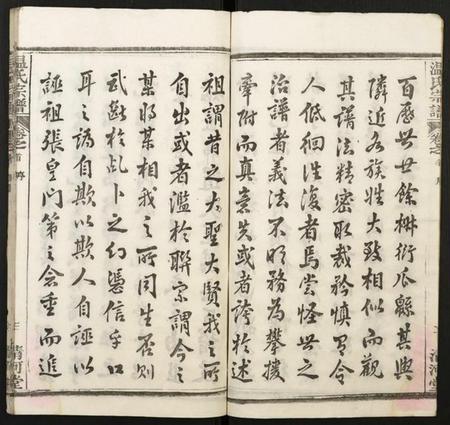 百歷世世餘椒衍瓜緜其與
隣近各族姓大致相似而觀
其譜法精密取裁矜慎有令
人低徊往復者焉嘗怪世之
治譜者義法不明務為攀援
牽附而真意失或者誇於述
祖謂昔之大聖大賢我之所
自出或者濫於聯宗謂今之
某將某相我之所同生否則
武斷於乩卜之幻憑信乎口
耳之謬自欺以欺人自誣以
誣祖張皇門第之念重而追
溫氏宗譜
卷之
清河堂
溫氏宗譜
卷之
清河堂